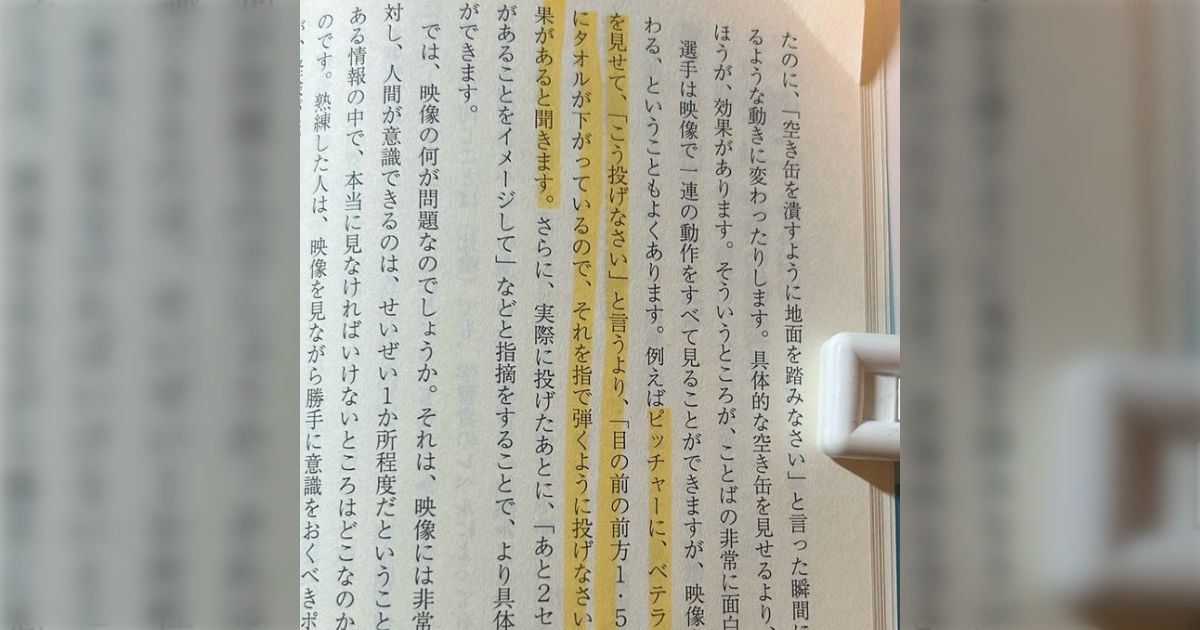 たのに、「空き缶を潰すように地面を踏みなさい」と言った瞬間に
るような動きに変わったりします。具体的な空き缶を見せるより、
ほうが、効果があります。そういうところが、ことばの非常に面白
選手は映像で一連の動作をすべて見ることができますが、映像
わる、ということもよくあります。例えばピッチャーに、ベテラ
を見せて、「こう投げなさい」と言うより、「目の前の前方1・5
にタオルが下がっているので、それを指で弾くように投げなさい
果があると聞きます。さらに、実際に投げたあとに、「あと2セ
があることをイメージして」などと指摘をすることで、より具体
ができます。
では、映像の何が問題なのでしょうか。それは、映像には非常
対し、人間が意識できるのは、せいぜい1か所程度だということ
ある情報の中で、本当に見なければいけないところはどこなのか
のです。熟練した人は、映像を見ながら勝手に意識をおくべきポ